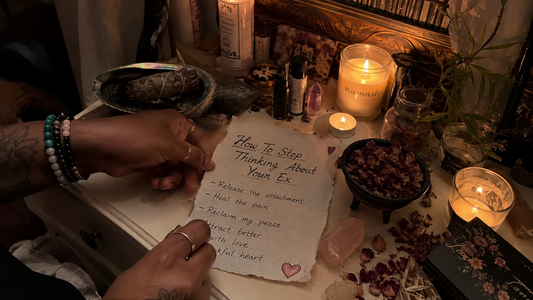 How To Stop
Thinking About
Your Ex
- Release the attachment
- Heal the pain
- Reclaim my peace
ttract better
with love
kful heart
namaste